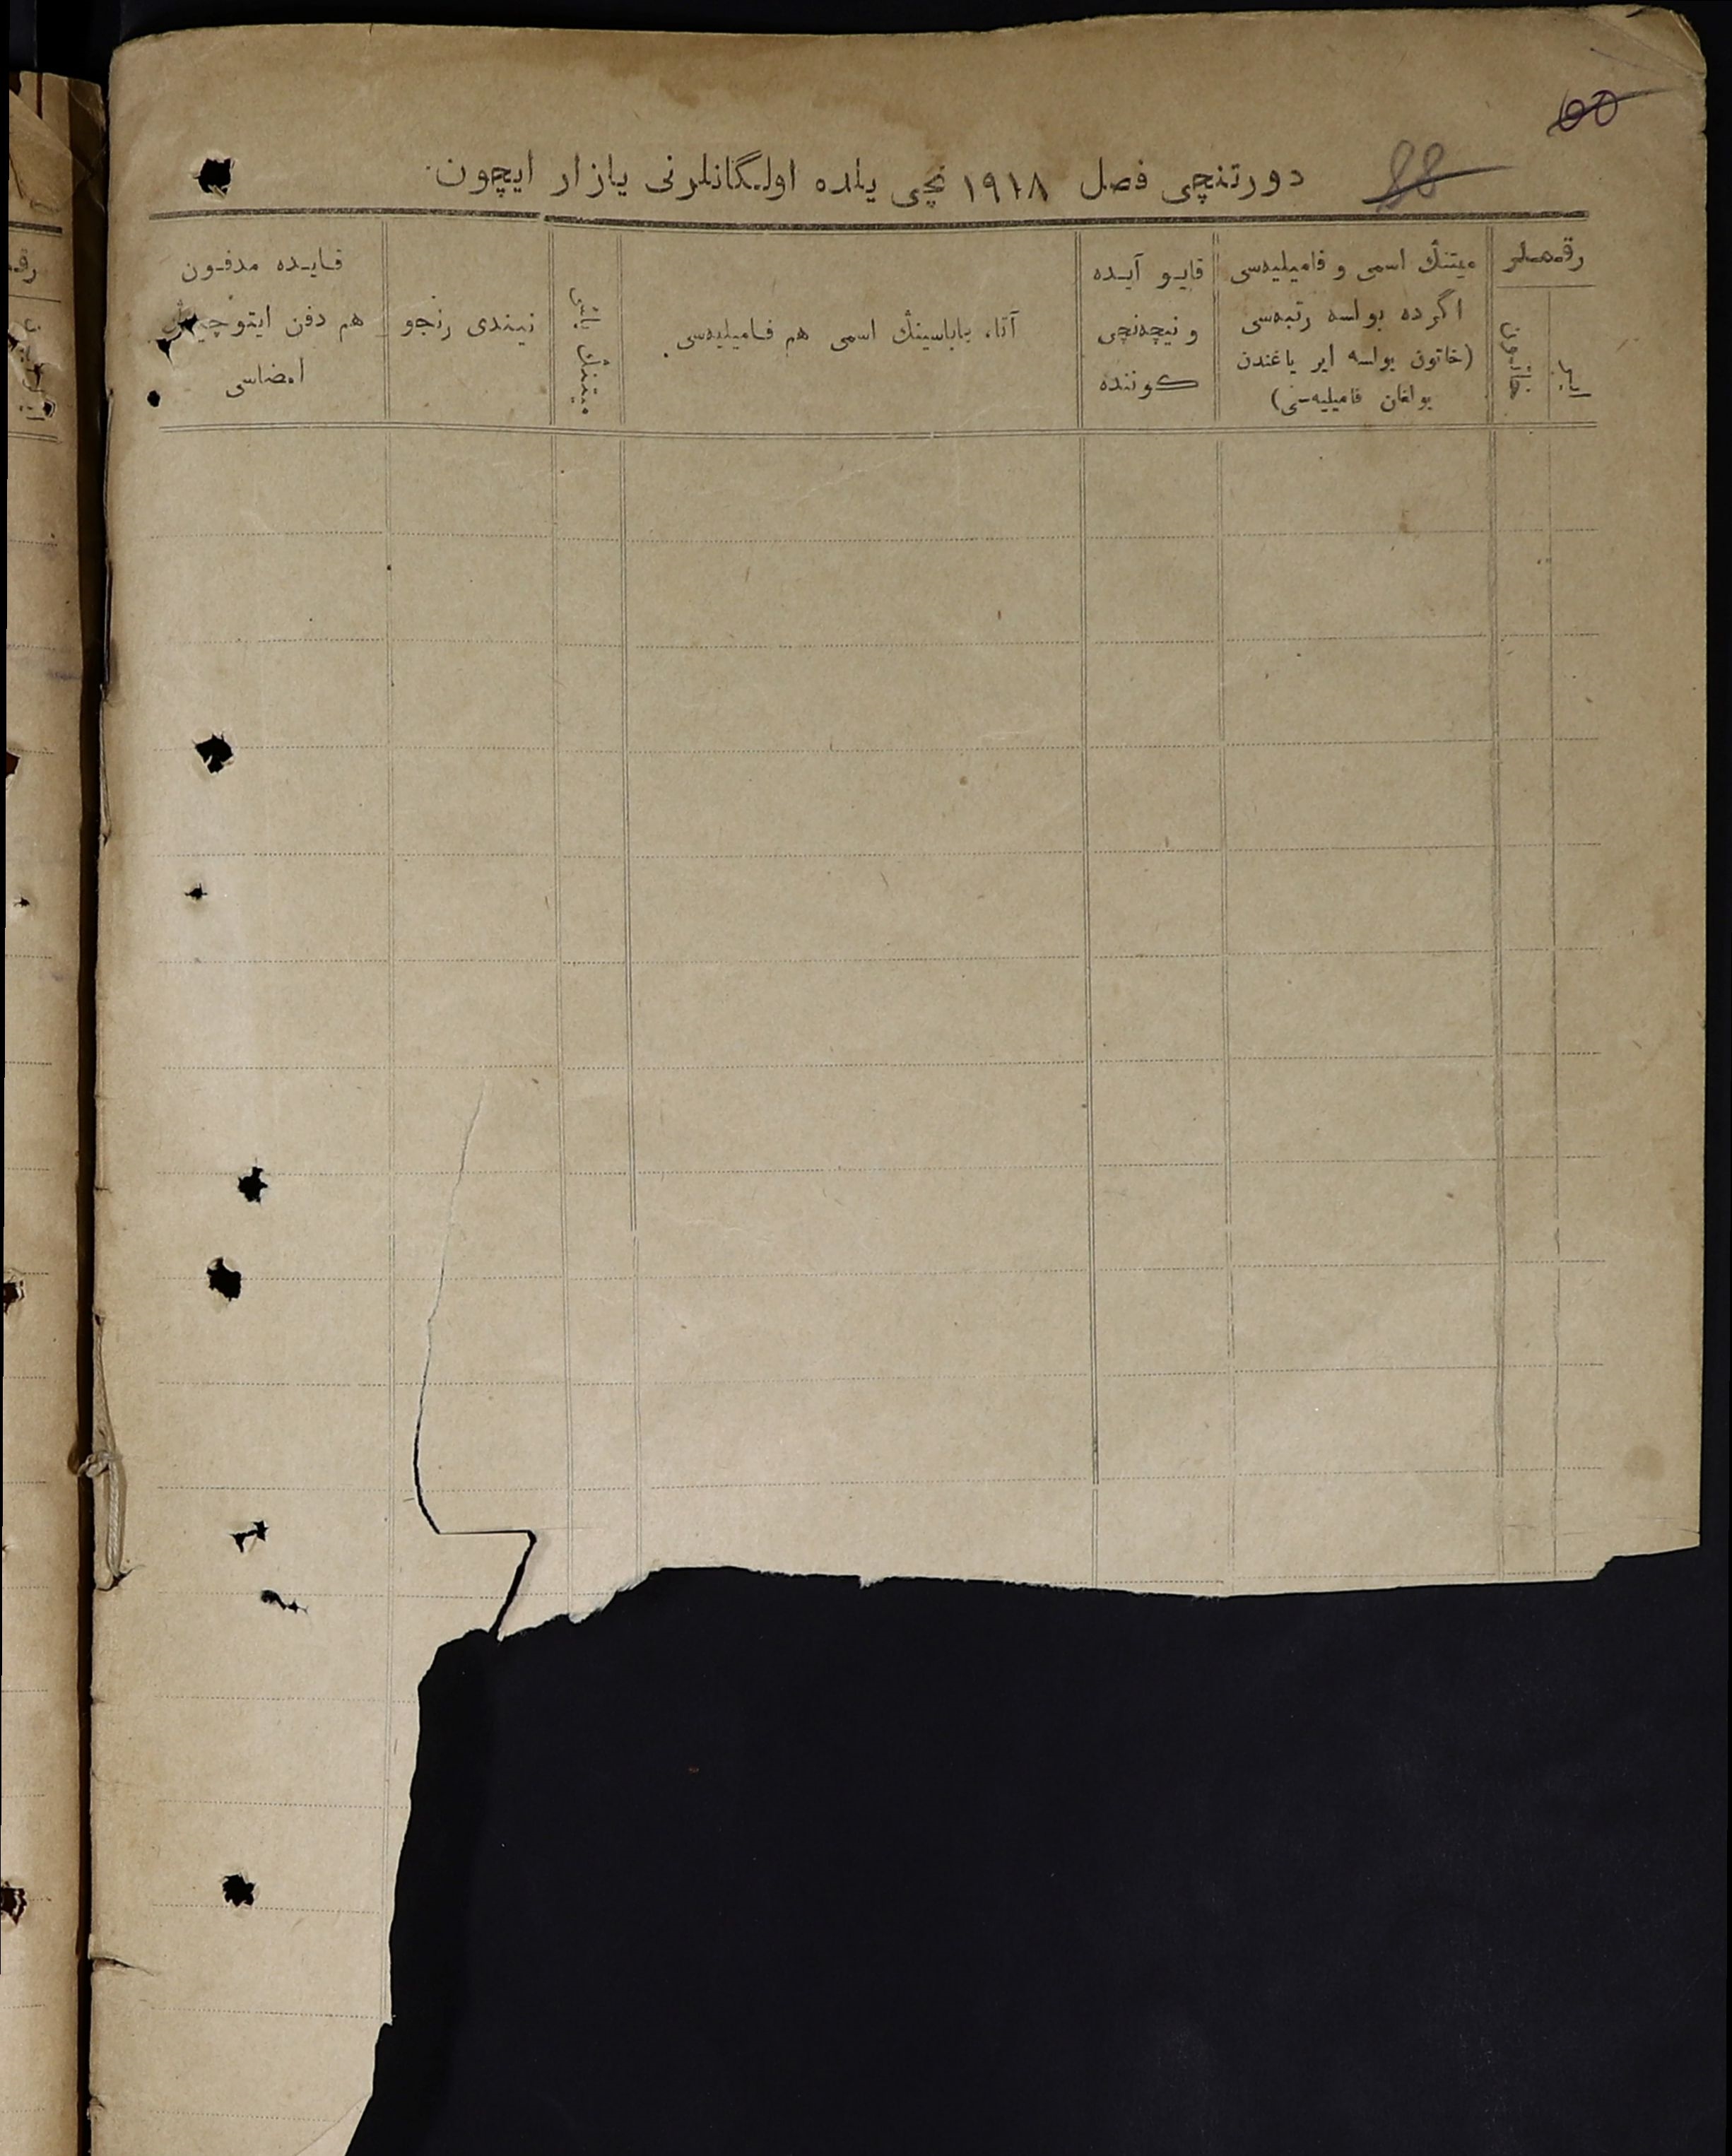 60
88
دورتنچی فصل ۱۹۱۸ نچی یلده اولگانلرنی یازار ایچون.
رقملر
ایرلر
خاتون
میتنڭ اسمی و فامیلیه‌سی
اگرده بولسه رتبه‌سی
(خاتون بولسه ایر یاغندن
بولغان فامیلیه‌سی)
قایو آیده
و نیچه‌نچی
كوننده
آتا، باباسینڭ اسمی هم فامیلیه‌سی.
میتنڭ یاشی
نیندی رنجو
قایده مدفون
هم دفن ایتوچینڭ
امضاسی